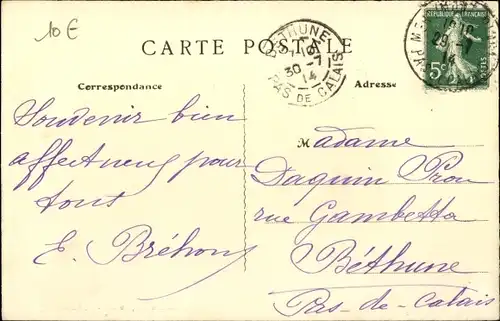 10 €
CARTE POSTALE
BÉTHUNE
30-7
14
PAS DE CALAIS
29-7
14
REPUBLIQUE FRANÇAISE
5c
POSTES
Correspondance
Adresse
Souvenir bien
affectueux pour
tous
E. Bréhon
Madame
Daquin
rue Gambetta
Béthune
Pas-de-Calais